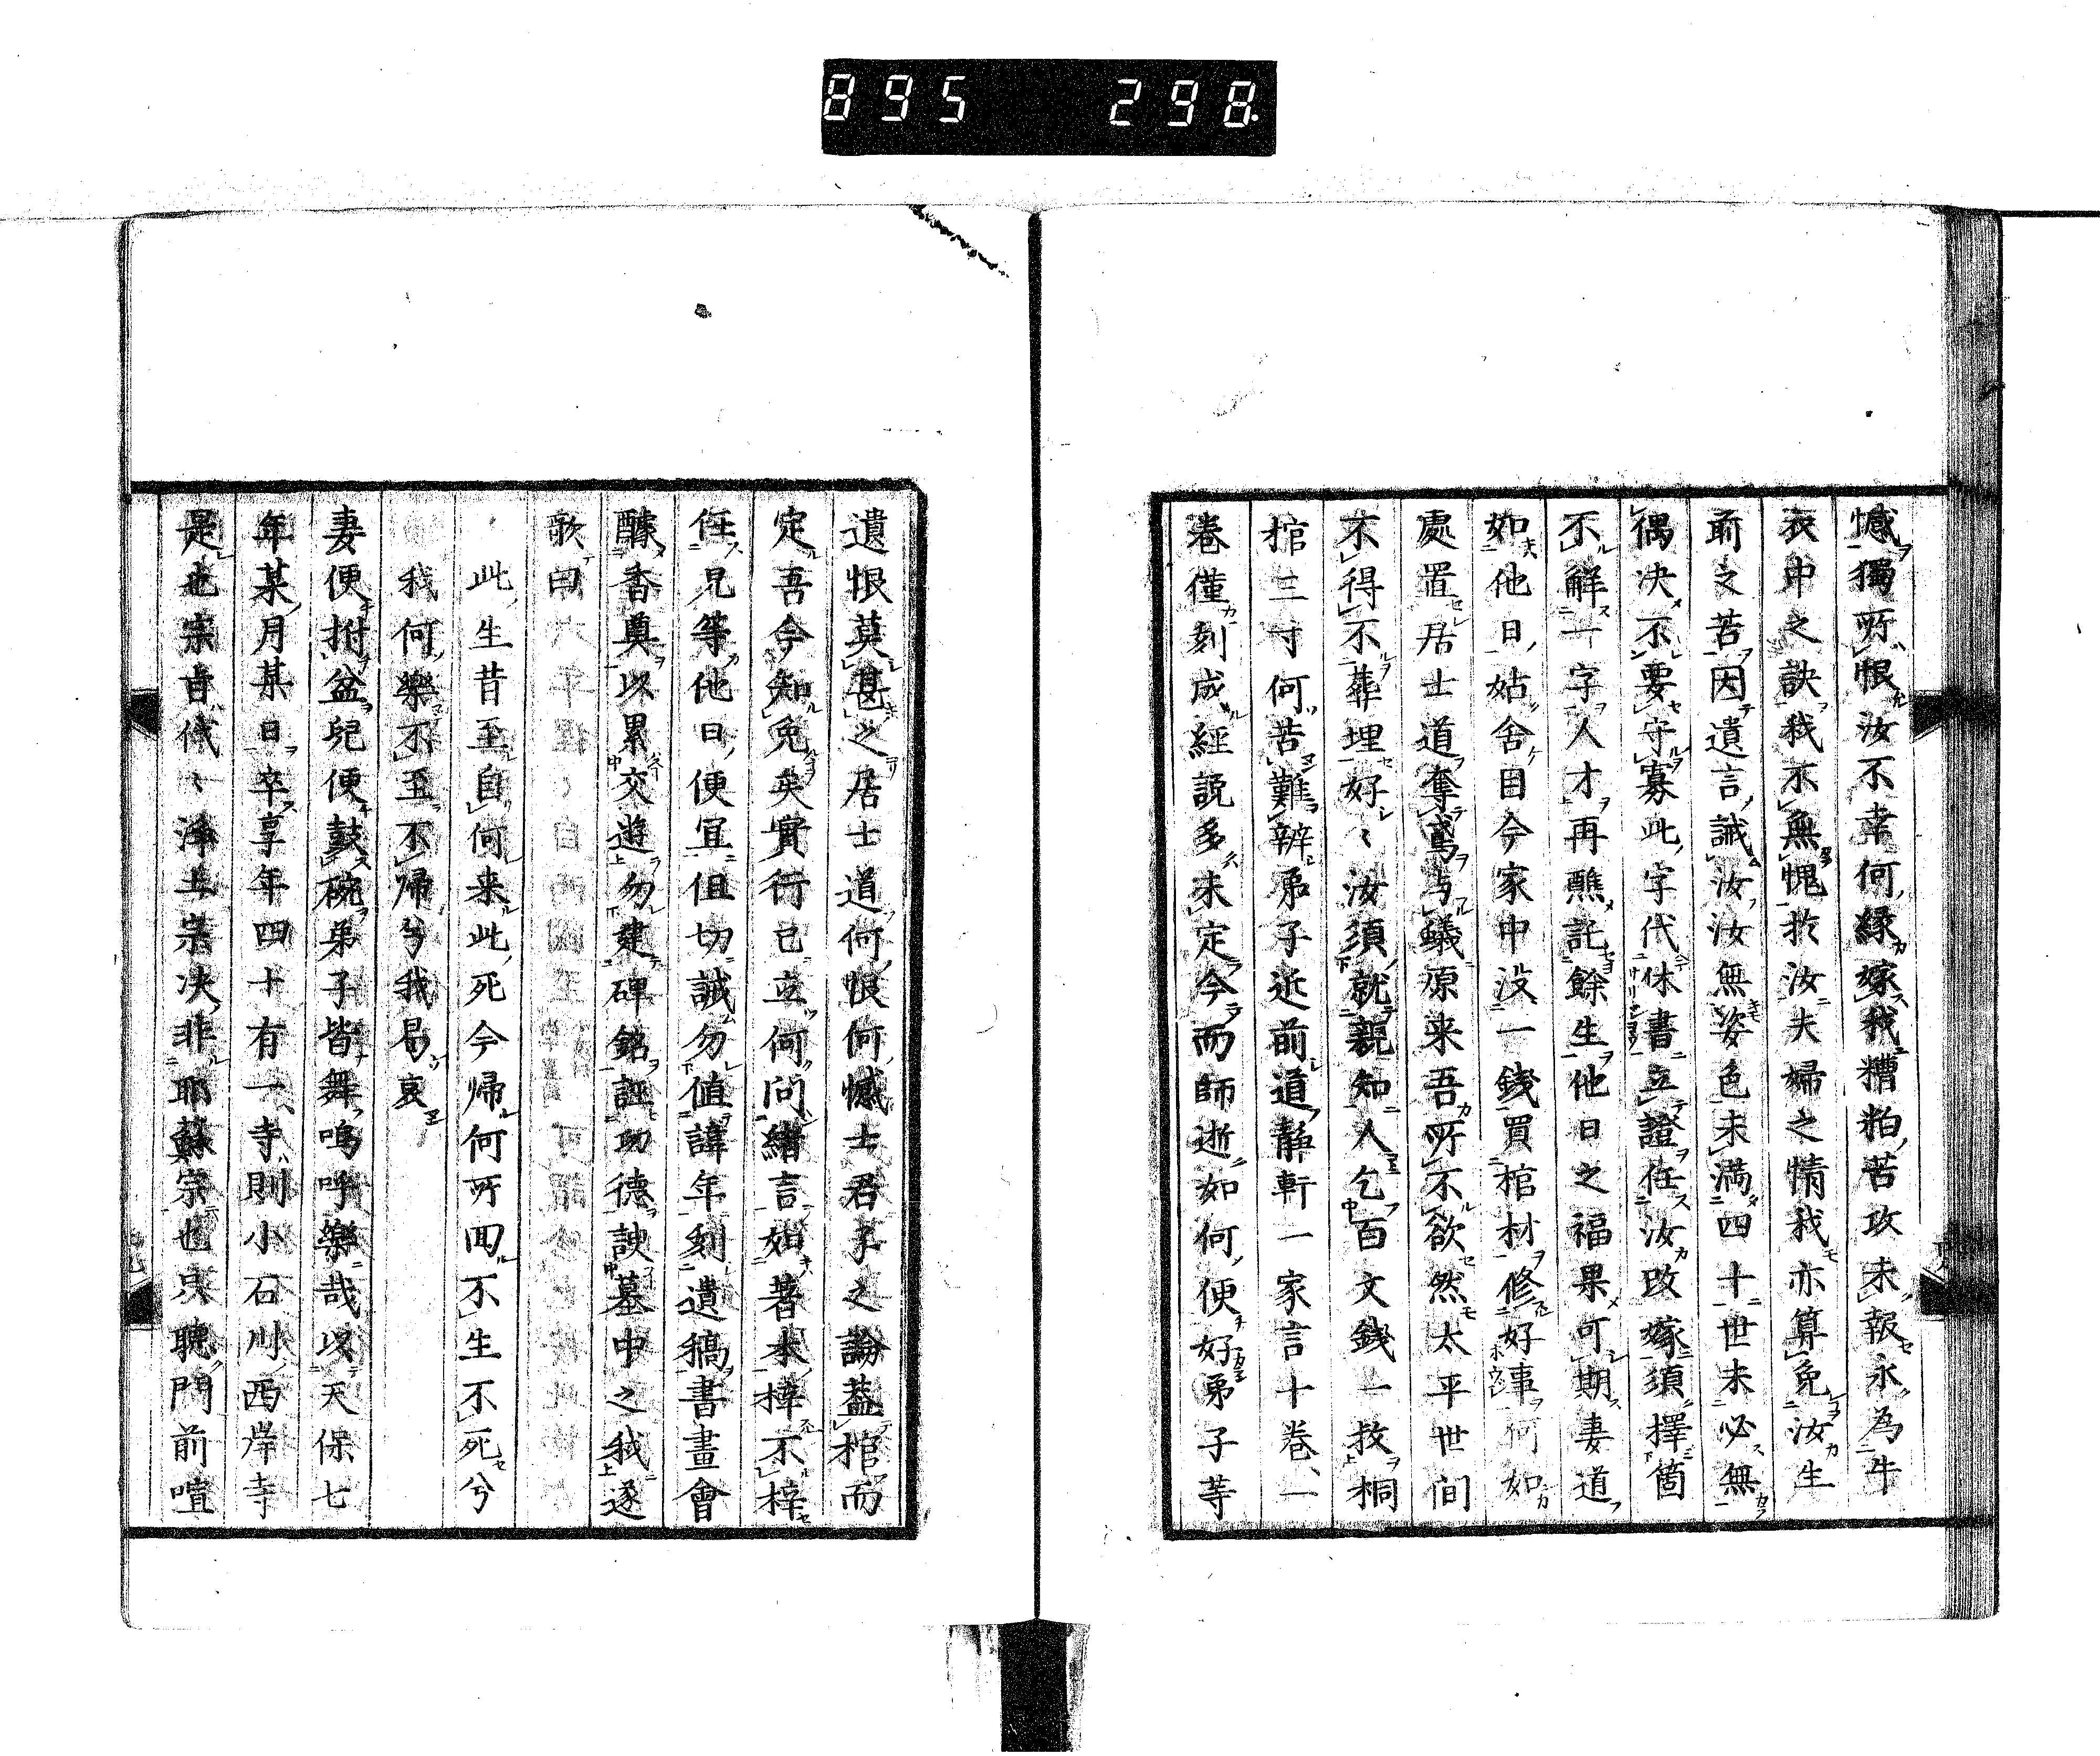 895 298
憾獨所恨汝不幸何縁嫁我糟粕苦攻未報永為牛
衣中之訣我不無愧於汝夫婦之情我亦算免汝生
前之苦因遺言誡汝汝無姿色未満四十世未必無
偶决不要守寡此字代休書立證任汝改嫁須擇箇
不解一字人才再醮託餘生他日之福果可期妻道
如他日姑舍目今家中没一錢買棺材修好事何如
處置居士道奪鳶与蟻原来吾所不欲然太平世间
不得不葬埋好〻汝須就親知人乞百文錢一投桐
棺三寸何苦難辨弟子近前道静軒一家言十卷一
卷僅刻成經説多未定今而師逝如何便好弟子等
遺恨莫甚之居士道何恨何憾士君子之論蓋棺而
定吾今知免矣實行已立何問緒言始著未擇不梓
任兄等他日便宜但切誡勿値諱年刻遺稿書畫會
醵香奠以累交遊勿建碑銘誣功德諛墓中之我遂
歌曰
此生昔至自何来此死今帰何所囬不生不死兮
我何樂不至不帰兮我曷哀
妻便拊盆兒便鼓碗弟子皆舞嗚呼樂哉以天保七
年某月某日卒享年四十有一寺則小石川西岸寺
是也宗旨代〻浄土宗决非耶蘇宗也只聴門前喧